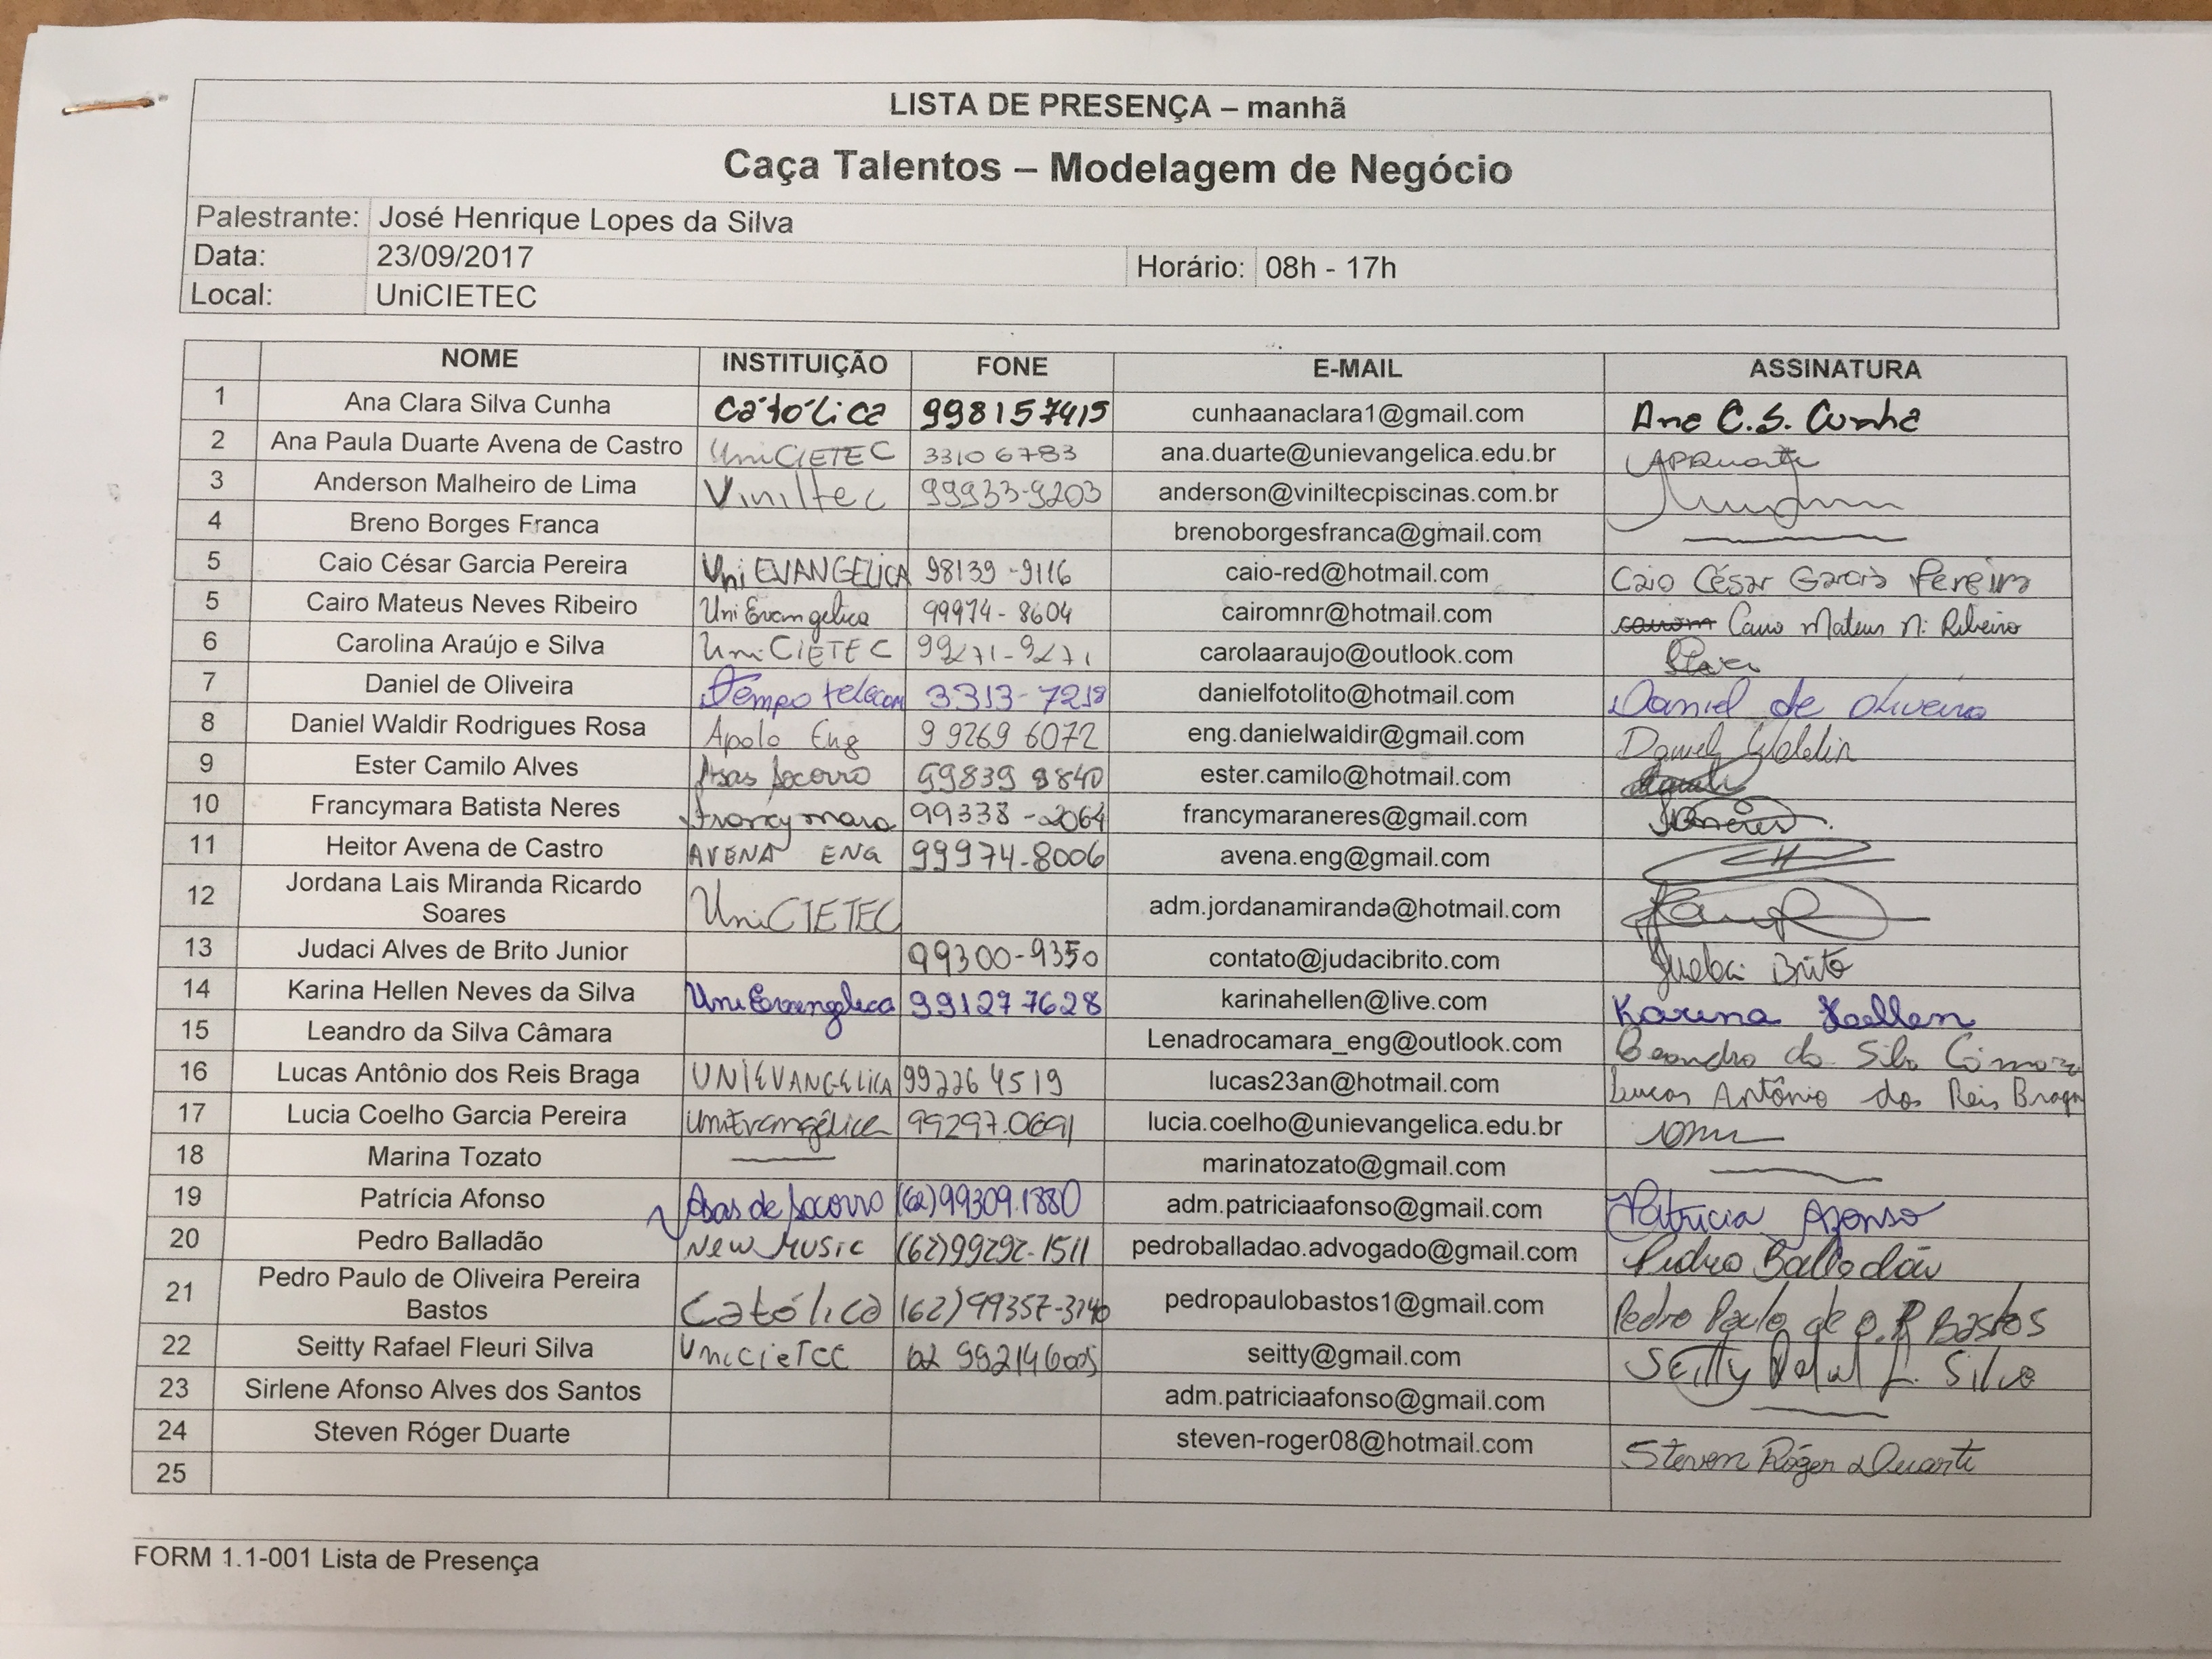 LISTA DE PRESENÇA – manhã
Caça Talentos – Modelagem de Negócio
Palestrante: José Henrique Lopes da Silva
Data: 23/09/2017 Horário: 08h - 17h
Local: UniCIETEC
NOME INSTITUIÇÃO FONE E-MAIL ASSINATURA
1 Ana Clara Silva Cunha Católica 998157415 cunhaanaclara1@gmail.com Ana C.S. Cunha
2 Ana Paula Duarte Avena de Castro UniCIETEC 33106783 ana.duarte@unievangelica.edu.br APDuarte
3 Anderson Malheiro de Lima Viniltec 99933-9203 anderson@viniltecpiscinas.com.br
4 Breno Borges Franca brenoborgesfranca@gmail.com
5 Caio César Garcia Pereira UniEVANGELICA 98139-9116 caio-red@hotmail.com Caio César Garcia Pereira
5 Cairo Mateus Neves Ribeiro UniEvangelica 99974-8604 cairomnr@hotmail.com Cairo Mateus N. Ribeiro
6 Carolina Araújo e Silva UniCIETEC 99271-9271 carolaaraujo@outlook.com
7 Daniel de Oliveira Tempo telecom 3313-7218 danielfotolito@hotmail.com Daniel de Oliveira
8 Daniel Waldir Rodrigues Rosa Apolo Eng 9 9269 6072 eng.danielwaldir@gmail.com Daniel Waldir
9 Ester Camilo Alves Asas Socorro 99839 8840 ester.camilo@hotmail.com
10 Francymara Batista Neres Francymara 99338-2064 francymaraneres@gmail.com
11 Heitor Avena de Castro AVENA ENG 99974-8006 avena.eng@gmail.com
12 Jordana Lais Miranda Ricardo
Soares UniCIETEC adm.jordanamiranda@hotmail.com
13 Judaci Alves de Brito Junior 99300-9350 contato@judacibrito.com Judaci Brito
14 Karina Hellen Neves da Silva UniEvangelica 991277628 karinahellen@live.com Karina Hellen
15 Leandro da Silva Câmara Lenadrocamara_eng@outlook.com Leandro da Silva Câmara
16 Lucas Antônio dos Reis Braga UNIEVANGELICA 99226 4519 lucas23an@hotmail.com Lucas Antônio dos Reis Braga
17 Lucia Coelho Garcia Pereira UniEvangélica 99297.0691 lucia.coelho@unievangelica.edu.br
18 Marina Tozato marinatozato@gmail.com
19 Patrícia Afonso Asas de Socorro (62)99309.1880 adm.patriciaafonso@gmail.com Patricia Afonso
20 Pedro Balladão New Music (62)99292-1511 pedroballadao.advogado@gmail.com Pedro Balladão
21 Pedro Paulo de Oliveira Pereira
Bastos Católica (62)99357-3140 pedropaulobastos1@gmail.com Pedro Paulo de O. P. Bastos
22 Seitty Rafael Fleuri Silva UniCieTEC 62 992146005 seitty@gmail.com Seitty Rafael F. Silva
23 Sirlene Afonso Alves dos Santos adm.patriciaafonso@gmail.com
24 Steven Róger Duarte steven-roger08@hotmail.com Steven Róger Duarte
25
FORM 1.1-001 Lista de Presença